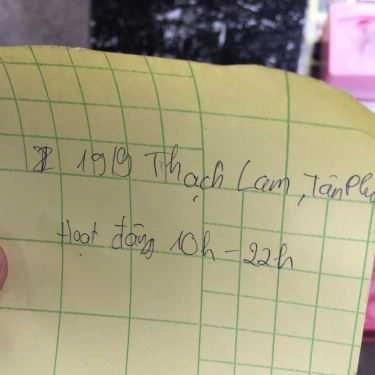 199 Thạch Lam, Tân Phú
Hoạt động 10h - 22h